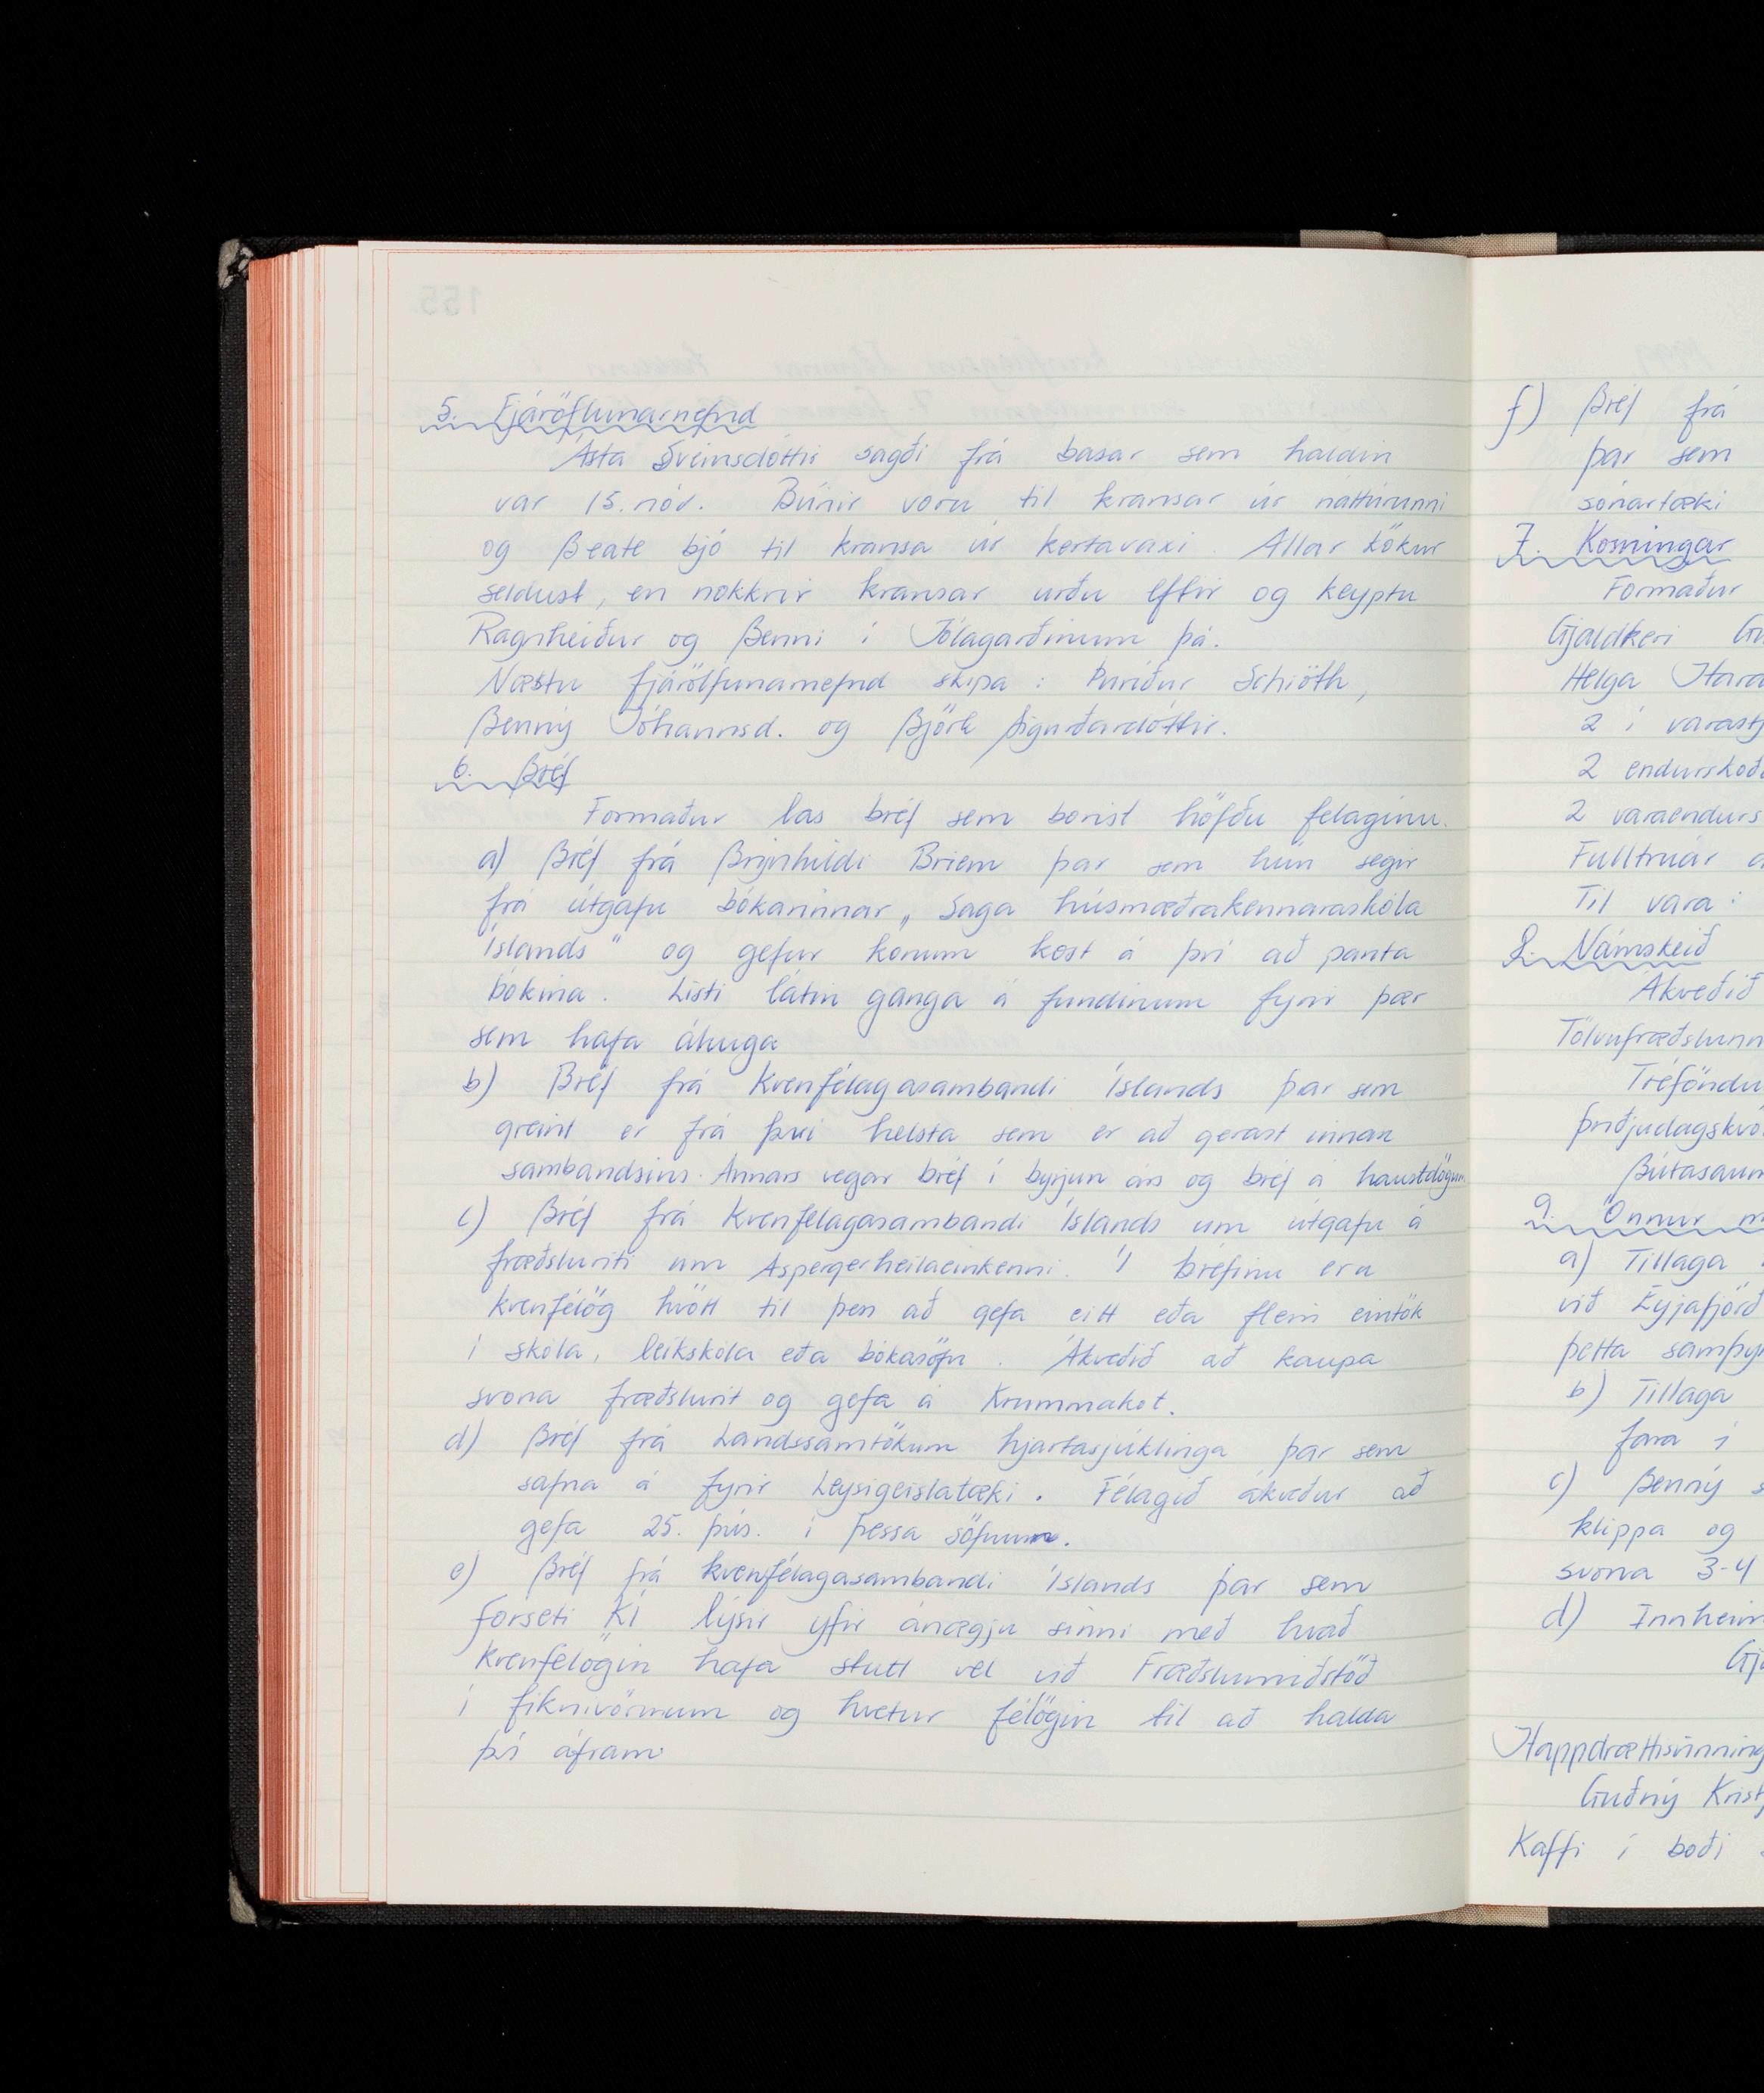 5. Fjáröflunarnefnd
Ásta Sveinsdóttir sagði frá basar sem haldin
var 15. nóv. Búnir voru til kransar úr náttúrunni
og Beate bjó til kransa úr kertavaxi. Allar kökur
seldust, en nokkrir kransar urðu eftir og keyptu
Ragnheiður og Benni í Jólagarðinum þá.
Næstu fjárölfunarnefnd skipa: Þuríður Schiöth,
Benný Jóhannsd. og Björk Sigurðardóttir.
6. Bréf
Formaður las bréf sem borist höfðu félaginu.
a) Bréf frá Brynhildi Briem þar sem hún segir
frá útgáfu bókarinnar „Saga húsmæðrakennaraskóla
Íslands" og gefur konum kost á því að panta
bókina. Listi látin ganga á fundinum fyrir þær
sem hafa áhuga
b) Bréf frá Kvenfélagasambandi Íslands þar sem
greint er frá því helsta sem er að gerast innan
sambandsins. Annars vegar bréf í byrjun árs og bréf á haustdögum
c) Bréf frá Kvenfélagasambandi Íslands um útgáfu á
fræðsluriti um Aspergerheilaeinkenni. Í bréfinu eru
kvenfélög hvött til þess að gefa eitt eða fleiri eintök
í skóla, leikskóla eða bókasöfn. Ákveðið að kaupa
svona fræðslurit og gefa á Krummakot.
d) Bréf frá Landssamtökum hjartasjúklinga þar sem
safna á fyrir Leysigeislatæki. Félagið ákveður að
gefa 25. þús. í þessa söfnun.
e) Bréf frá kvenfélagasambandi Íslands þar sem
forseti KÍ lýsir yfir ánægju sinni með hvað
kvenfélögin hafa stutt vel við Fræðslumiðstöð
í fíknivörnum og hvetur félögin til að halda
því áfram.
f) Bréf frá
þar sem
sónartæki
7. Kosningar
Formaður
Gjaldkeri
Helga
2 í
2
2
Fulltrúar
Til vara:
8. Námskeið
Ákveðið
9. Önnur
a) Tillaga
við
þetta
b) Tillaga
fara í
c) Benný
klippa og
svona 3-4
d)
Guðný
Kaffi í boði